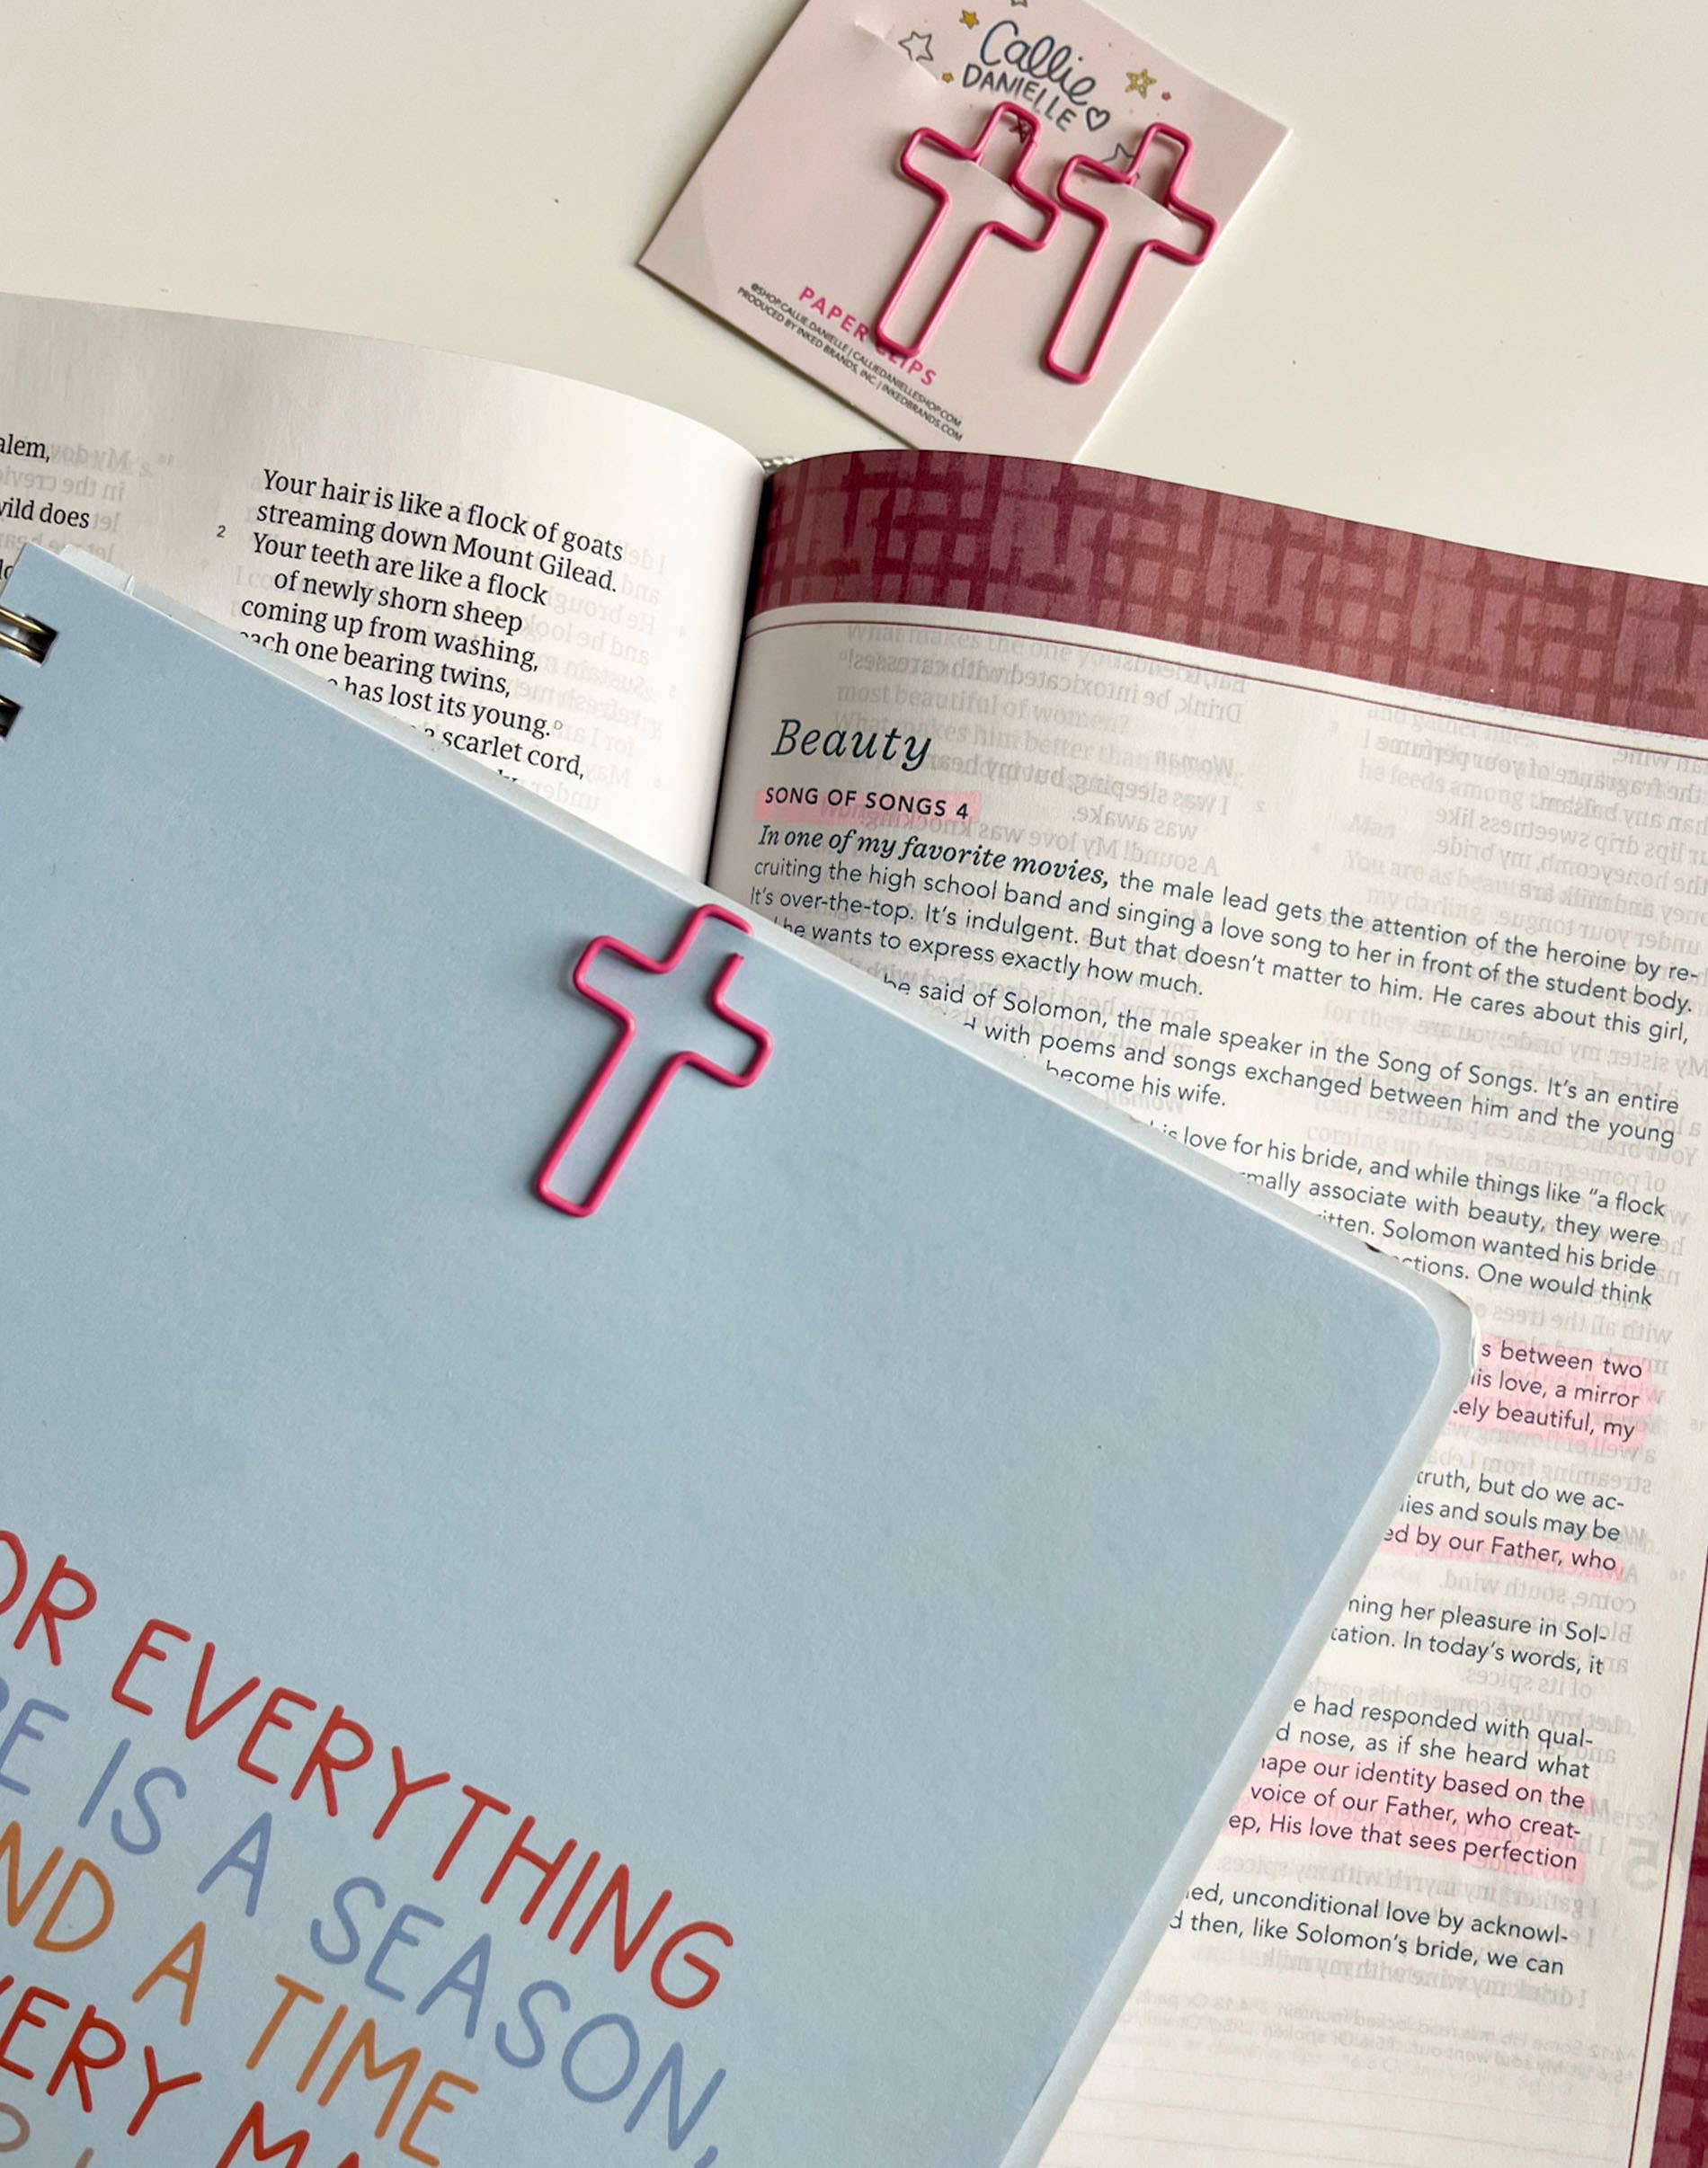 Callie
DANIELLE
PAPER CLIPS
@SHOP.CALLIE.DANIELLE | CALLIEDANIELLESHOP.COM
PRODUCED BY INKED BRANDS, INC. | INKEDBRANDS.COM
alem,
wild does
Your hair is like a flock of goats
streaming down Mount Gilead.
2 Your teeth are like a flock
of newly shorn sheep
coming up from washing,
each one bearing twins,
has lost its young.
scarlet cord,
Beauty
SONG OF SONGS 4
In one of my favorite movies, the male lead gets the attention of the heroine by re-
cruiting the high school band and singing a love song to her in front of the student body.
It's over-the-top. It's indulgent. But that doesn't matter to him. He cares about this girl,
he wants to express exactly how much.
be said of Solomon, the male speaker in the Song of Songs. It's an entire
with poems and songs exchanged between him and the young
become his wife.
is love for his bride, and while things like "a flock
mally associate with beauty, they were
itten. Solomon wanted his bride
ctions. One would think
s between two
is love, a mirror
tely beautiful, my
truth, but do we ac-
lies and souls may be
ed by our Father, who
ning her pleasure in Sol-
tation. In today's words, it
e had responded with qual-
d nose, as if she heard what
hape our identity based on the
voice of our Father, who creat-
ep, His love that sees perfection
ied, unconditional love by acknowl-
d then, like Solomon's bride, we can
OR EVERYTHING
RE IS A SEASON,
ND A TIME
VERY MA